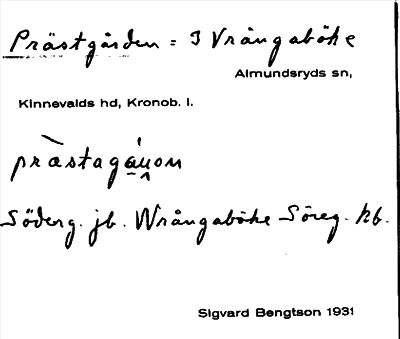 Prästgården = 3 Vrångaböke
Almundsryds sn,
Kinnevalds hd, Kronob. l.
pràstagáu̯on
Söderg. jb. Wrångaböke Söreg. kb.
Sigvard Bengtson 1931